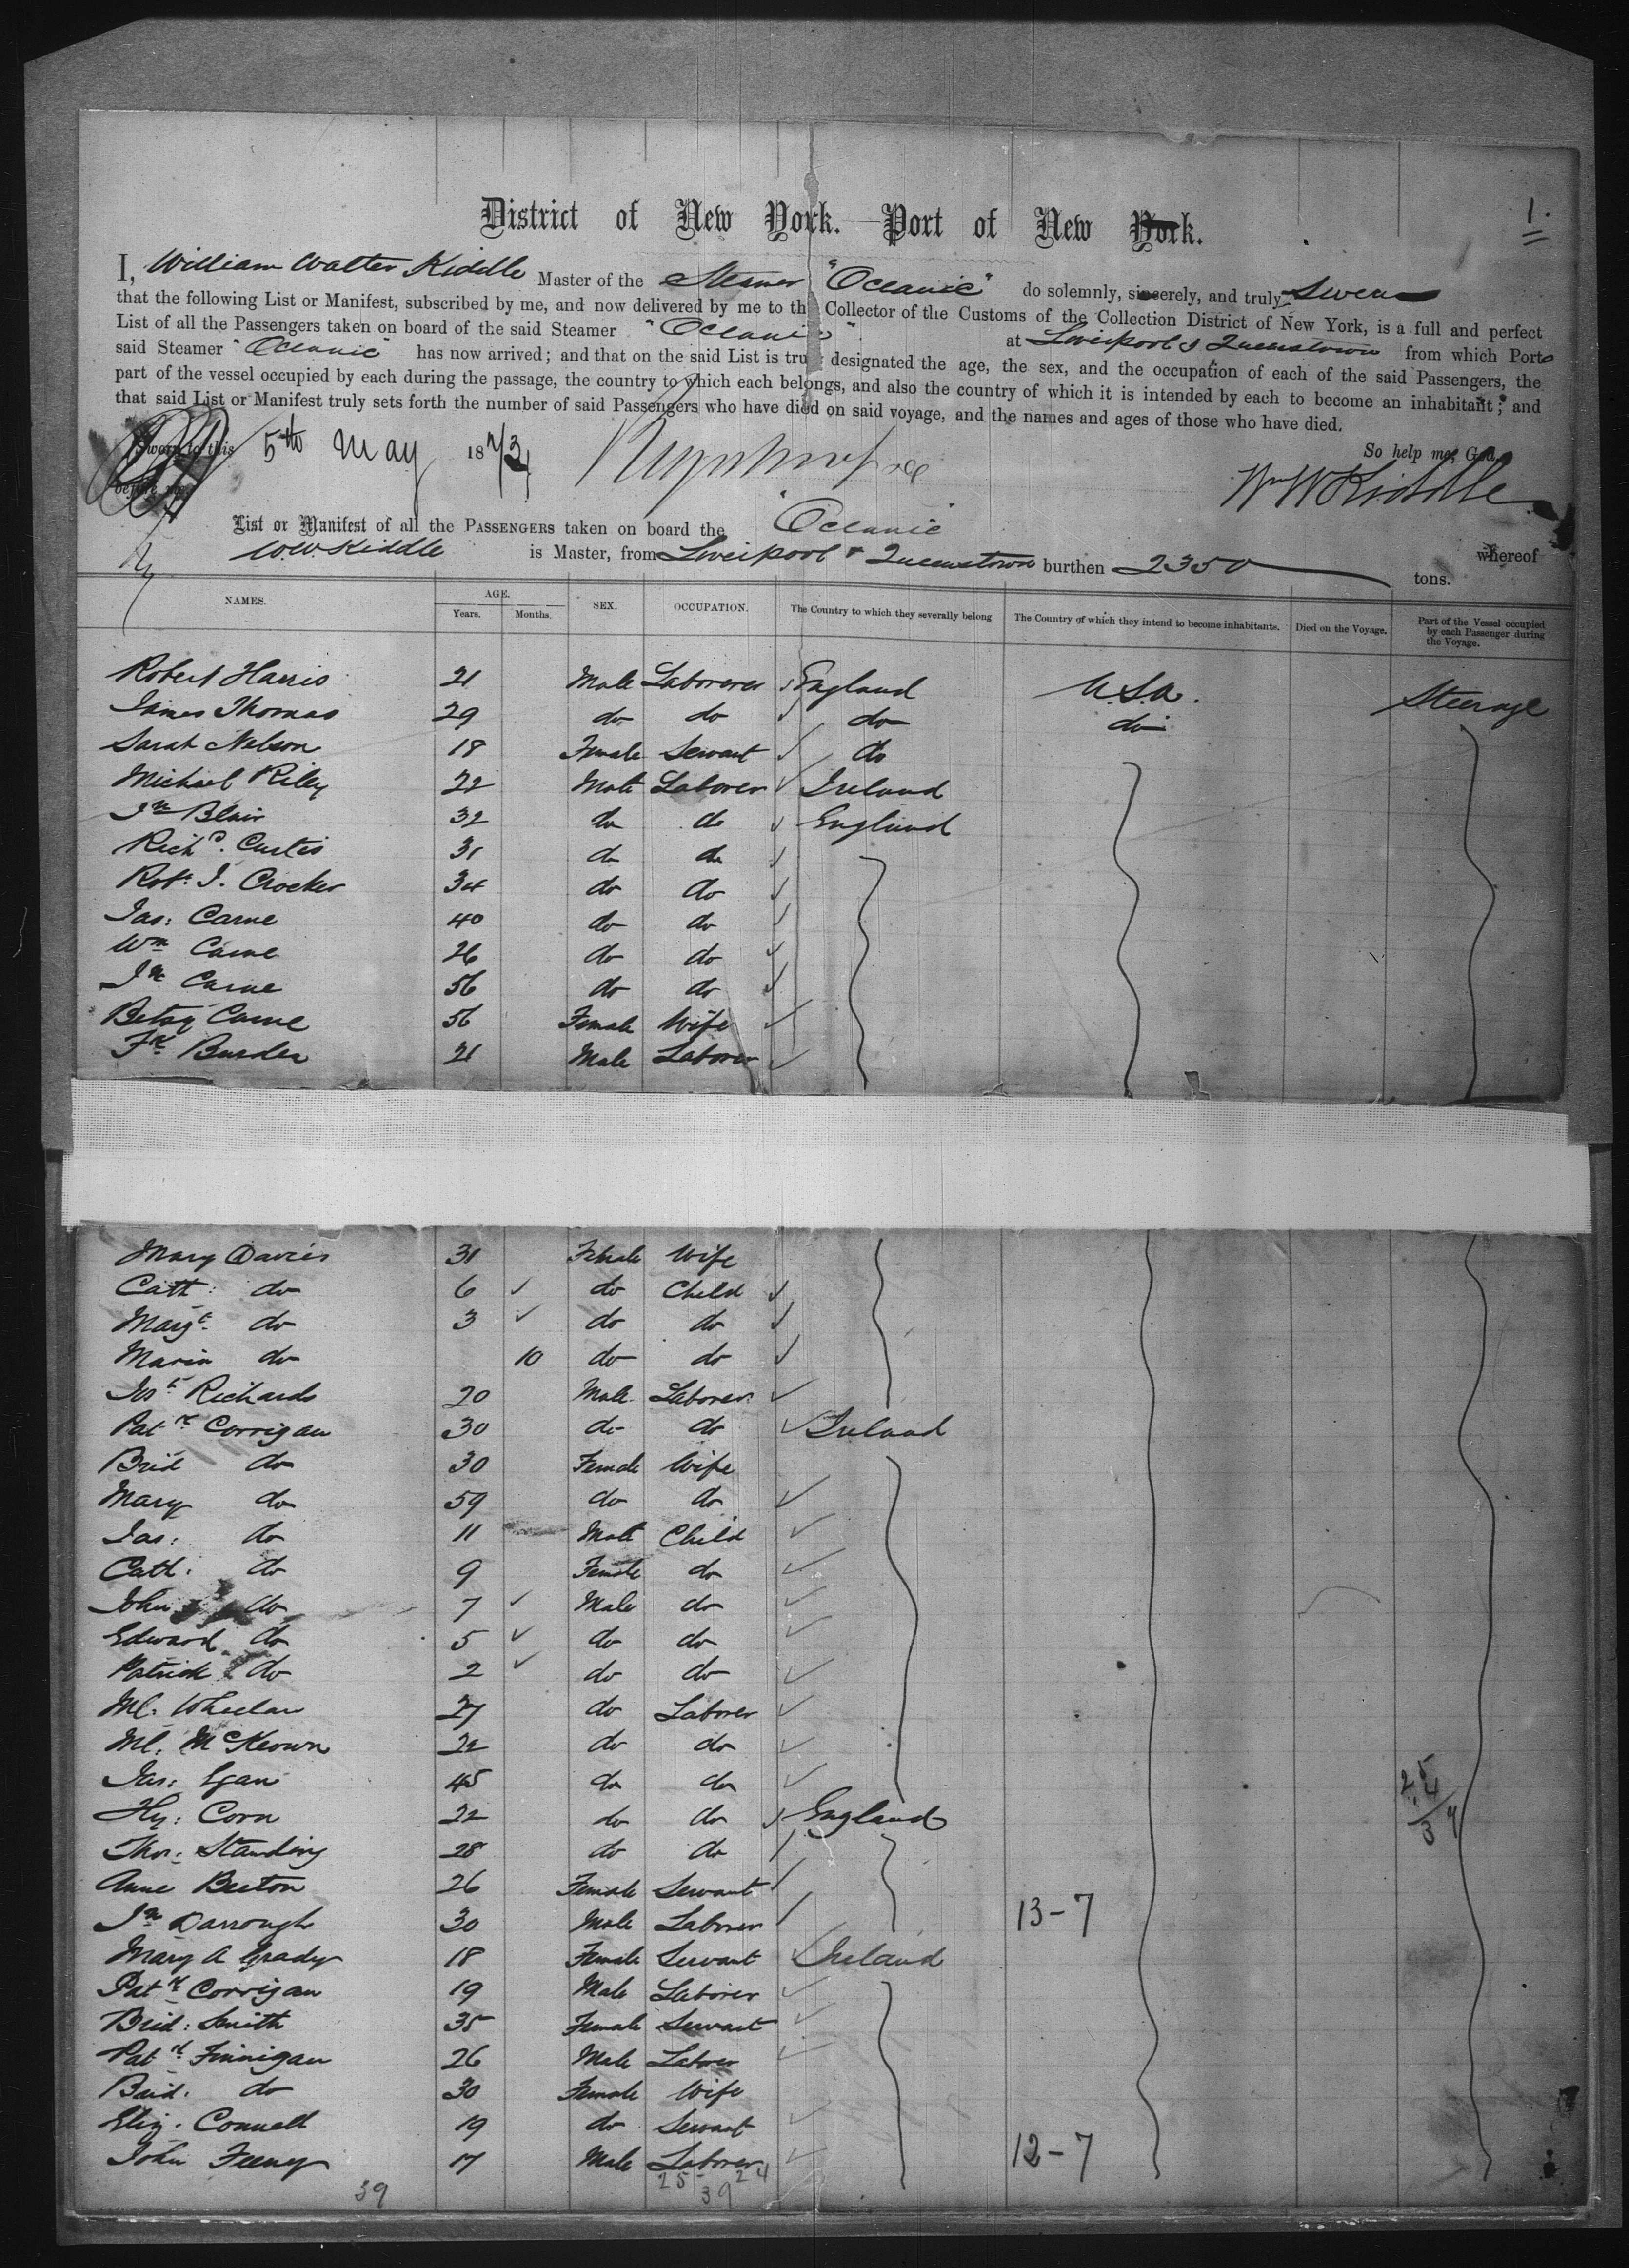 1.
District of New York.—Port of New York.
I, William Walter Kiddle Master of the Steamer "Oceanic" do solemnly, sincerely, and truly Swear
that the following List or Manifest, subscribed by me, and now delivered by me to the Collector of the Customs of the Collection District of New York, is a full and perfect
List of all the Passengers taken on board of the said Steamer "Oceanic" at Liverpool & Queenstown from which Ports
said Steamer "Oceanic" has now arrived; and that on the said List is truly designated the age, the sex, and the occupation of each of the said Passengers, the
part of the vessel occupied by each during the passage, the country to which each belongs, and also the country of which it is intended by each to become an inhabitant; and
that said List or Manifest truly sets forth the number of said Passengers who have died on said voyage, and the names and ages of those who have died.
Sworn to this 5th May 187 So help me, God.
before me Wm W Kiddle
List or Manifest of all the PASSENGERS taken on board the "Oceanic" whereof
W.W. Kiddle is Master, from Liverpool & Queenstown burthen 2350 tons.
NAMES. AGE. SEX. OCCUPATION. The Country to which they severally belong The Country of which they intend to become inhabitants. Died on the Voyage. Part of the Vessel occupied by each Passenger during the Voyage.
Years. Months.
Robert Harris 21 Male Laborer England U.S.A. Steerage
James Thomas 29 do do do do
Sarah Nelson 18 Female Servant do
Michael Riley 22 Male Laborer Ireland
Jn Blair 32 do do England
Richd. Curtis 31 do do
Robt. J. Crocker 34 do do
Jas: Carne 40 do do
Wm Carne 26 do do
Jn Carne 56 do do
Betsy Carne 56 Female Wife
Fk Burden 21 Male Laborer
Mary Davies 31 Female Wife
Cath: do 6 do Child
Margt. do 3 do do
Maria do 10 do do
Josh Richards 20 Male Laborer
Patk Corrigan 30 do do Ireland
Brid do 30 Female Wife
Mary do 59 do do
Jas: do 11 Male Child
Cath: do 9 Female do
John do 7 Male do
Edward do 5 do do
Patrick do 2 do do
Ml. Wheelan 27 do Laborer
Ml. McKeown 22 do do
Jas: Egan 45 do do
Hy: Corn 22 do do England
Thos: Standing 28 do do
Anne Beeton 26 Female Servant
Jn Darrough 30 Male Laborer 13-7
Mary A Grady 18 Female Servant Ireland
Patk Corrigan 19 Male Laborer
Brid: Smith 35 Female Servant
Patk Finnigan 26 Male Laborer
Brid. do 30 Female Wife
Eliz. Connell 19 do Servant
John Feeny 17 Male Laborer 12-7
39 25 39 24